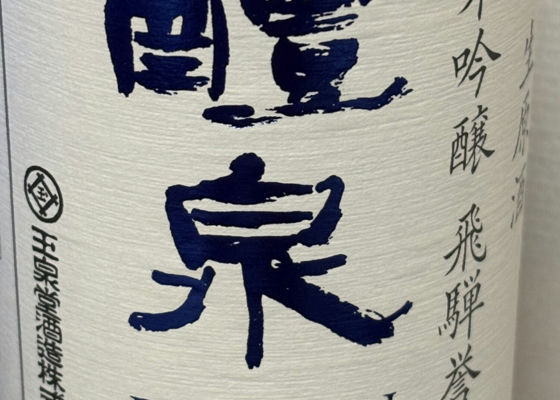 生原酒
吟醸 飛騨誉
醴泉
玉泉堂酒造株式